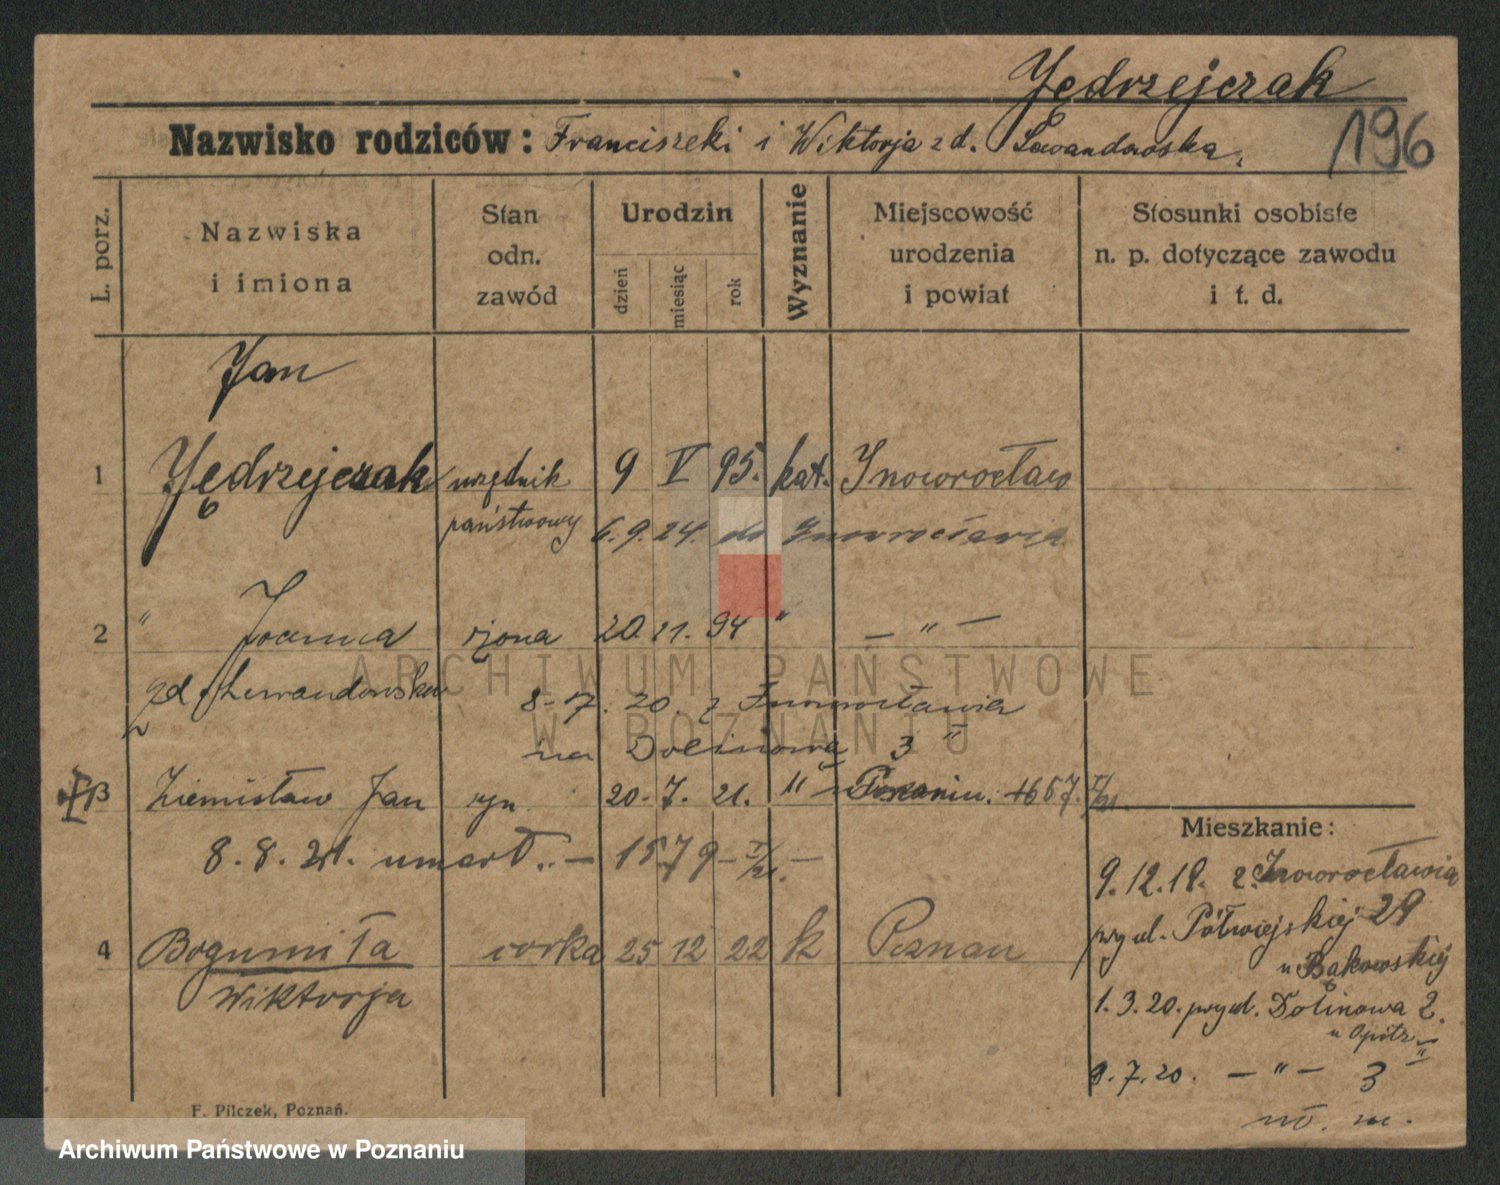 Jędrzejczak
Nazwisko rodziców: Franciszek i Wiktorja z d. Lewandowska.
196
L. porz.
Nazwiska i imiona
Stan odn. zawód
Urodzin
dzień
miesiąc
rok
Wyznanie
Miejscowość urodzenia i powiat
Stosunki osobiste n. p. dotyczące zawodu i t. d.
Jan
1 Jędrzejczak urzędnik 9 V 95. kat. Inowrocław
państwowy 6.9.24. do Inowrocławia
2 " Joanna żona 20. 11. 94 " — " —
zd. Lewandowska
8-7. 20. z Inowrocławia
na Dolinowa 3 "
3 Ziemisław Jan syn 20. 7. 21. " Poznaniu.
8. 8. 21. umarł. — 1579 — —
4 Bogumiła córka 25 12 22 k Poznań
Wiktorja
Mieszkanie:
9. 12. 18. z Inowrocławia
Półwiejskiej 29
u Bąkowskiej
1. 3. 20. Dolinowa 2.
u Opitz
8. 7. 20. — " — 3 "
F. Pilczek, Poznań.
ARCHIWUM PAŃSTWOWE
W POZNANIU
Archiwum Państwowe w Poznaniu